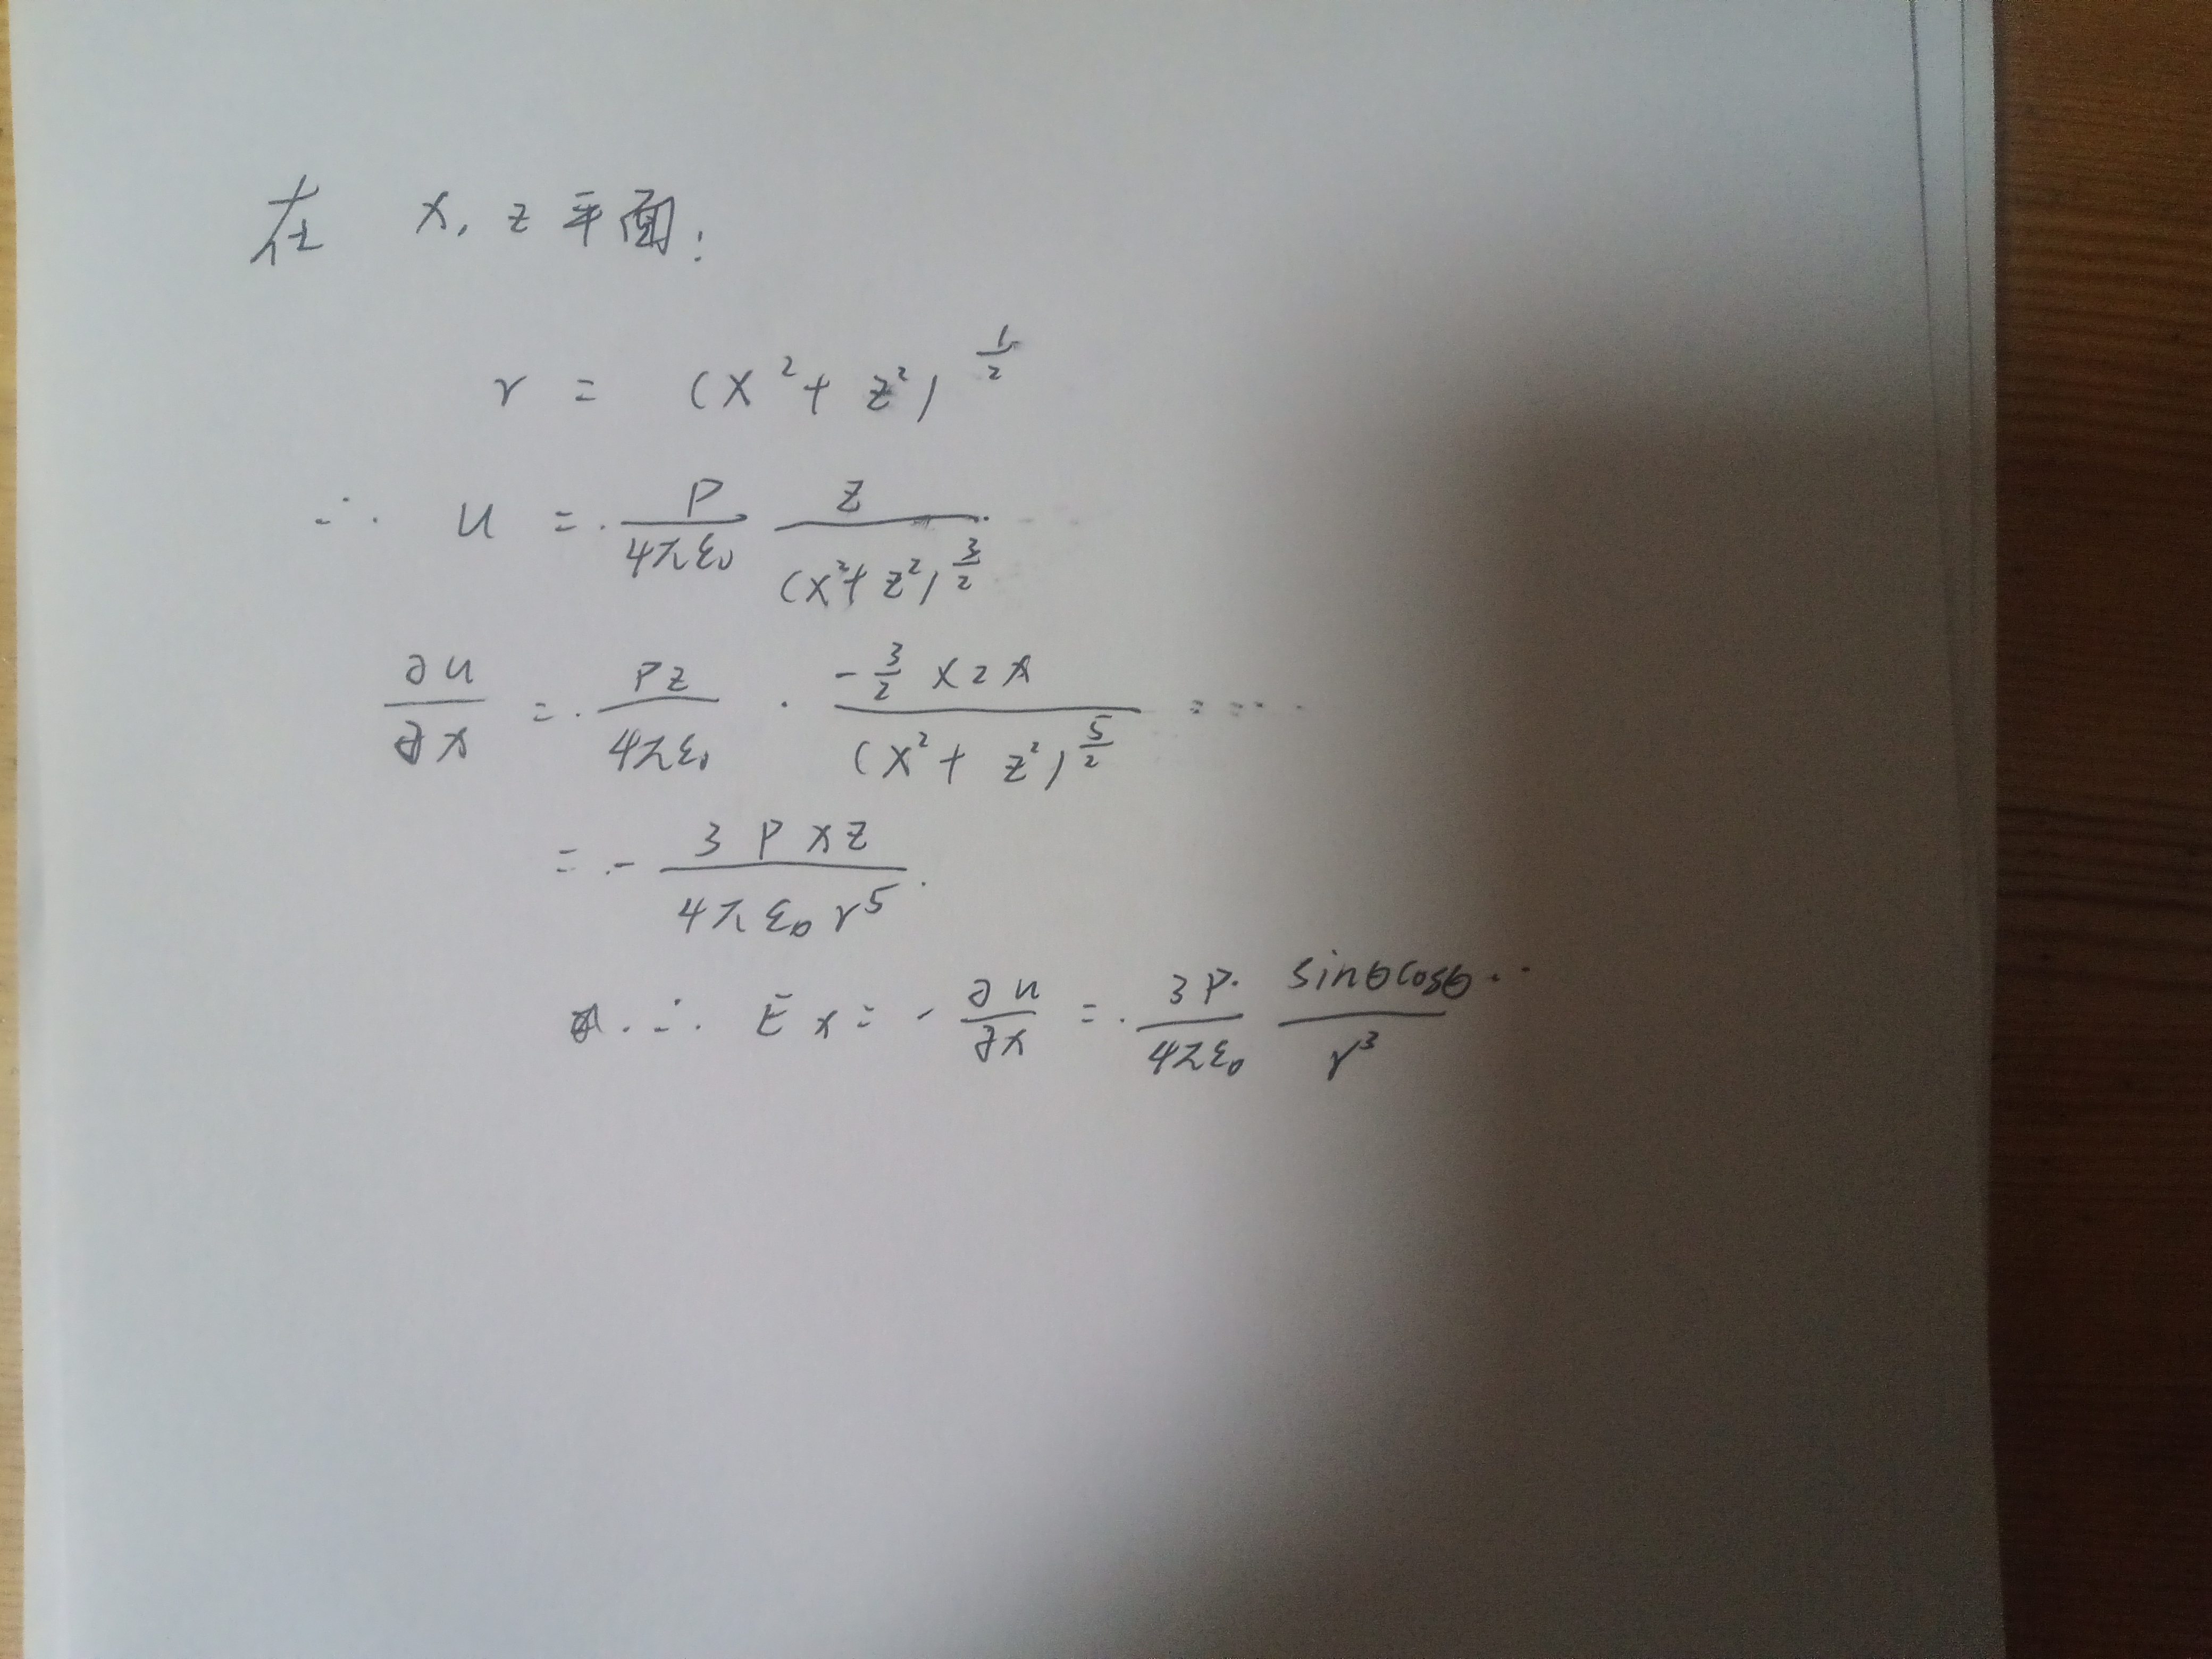 在 x, z 平面:
r = (x² + z²)^{1/2}
∴ u = \frac{P}{4πε₀} \frac{z}{(x²+z²)^{3/2}}
\frac{∂u}{∂x} = \frac{Pz}{4πε₀} · \frac{-\frac{3}{2} × 2x}{(x²+z²)^{5/2}}
= - \frac{3Pxz}{4πε₀r⁵}
∴ Ex = - \frac{∂u}{∂x} = \frac{3P}{4πε₀} \frac{sinθcosθ}{r³}